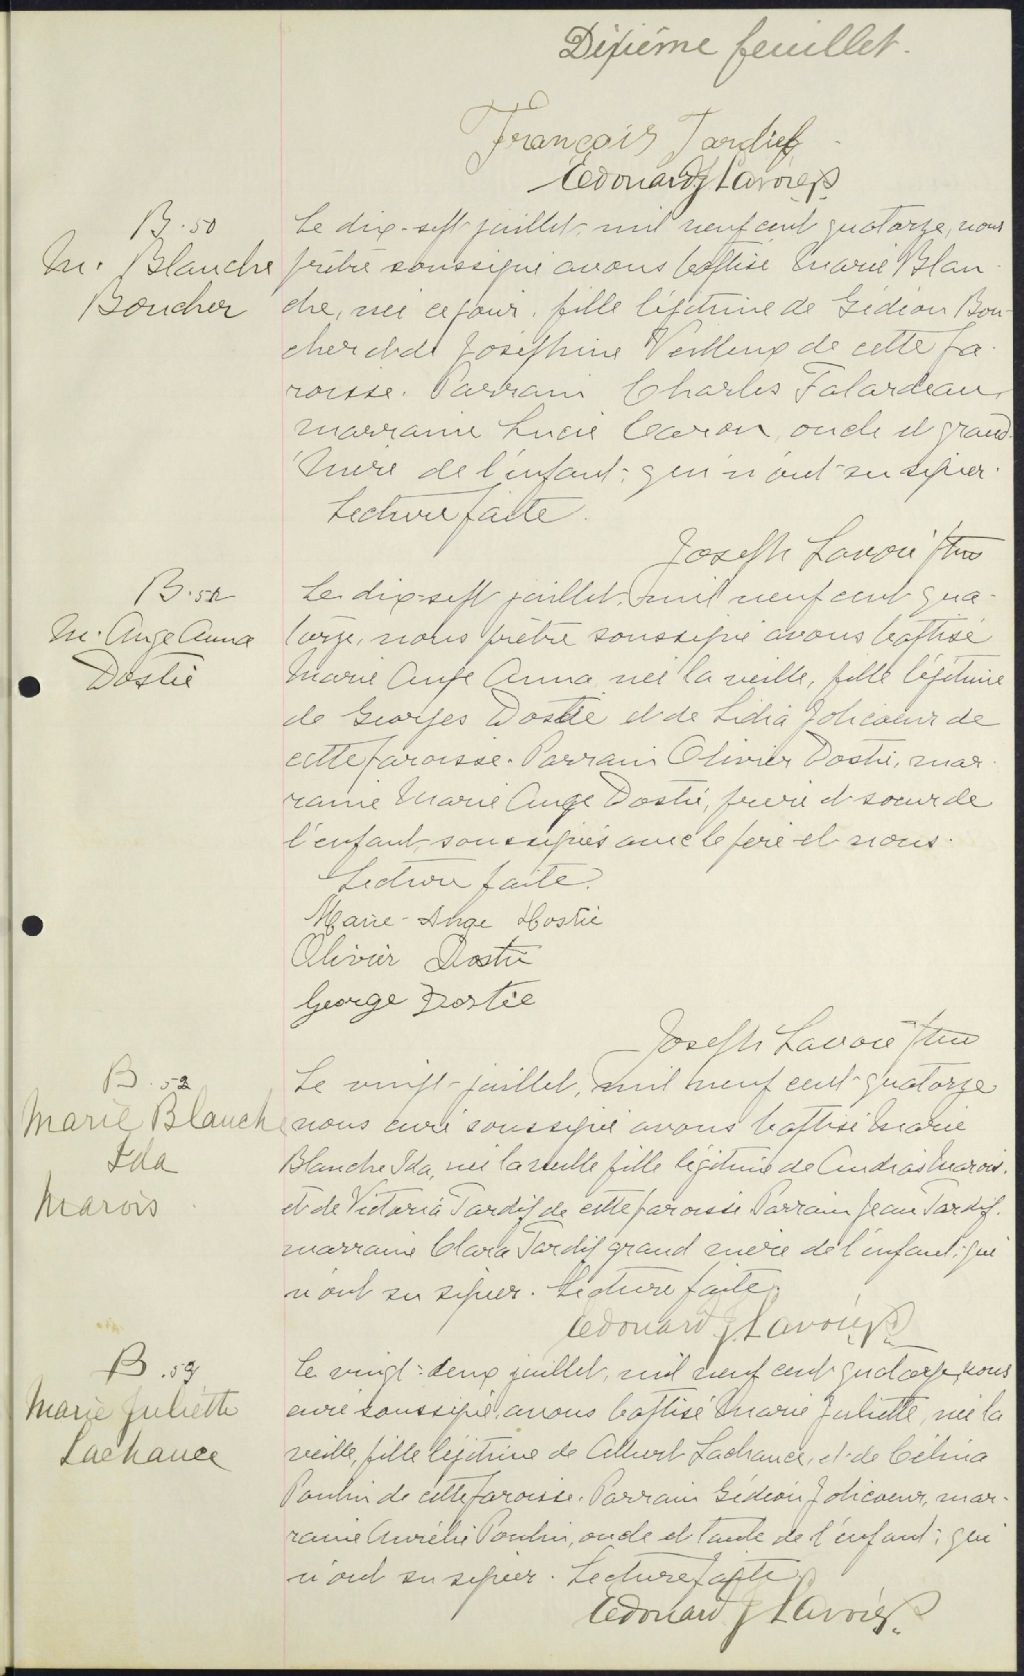 Dixième feuillet.
François Tardif
Edouard J Lavoie P
B. 50
M. Blanche
Boucher
Le dix-sept juillet, mil neuf cent quatorze, nous
prêtre soussigné avons baptisé Marie Blan-
che, née ce jour, fille légitime de Gédéon Bou-
cher et de Joséphine Veilleux de cette pa-
roisse. Parrain Charles Falardeau,
marraine Lucie Caron, oncle et grand
mère de l'enfant; qui n'ont su signer.
Lecture faite.
Joseph Lavoie Ptre
B. 51
M. Ange Anna
Dostie
Le dix-sept juillet, mil neuf cent qua-
torze, nous prêtre soussigné avons baptisé
Marie Ange Anna, née la veille, fille légitime
de Georges Dostie et de Lidia Jolicoeur de
cette paroisse. Parrain Olivier Dostie, mar-
raine Marie Ange Dostie, frère et soeur de
l'enfant soussignés avec le père et nous.
Lecture faite.
Marie-Ange Dostie
Olivier Dostie
George Dostie
Joseph Lavoie Ptre
B. 52
Marie Blanche
Ida
Marois
Le vingt-juillet, mil neuf cent-quatorze
nous curé soussigné avons baptisé Marie
Blanche Ida, née la veille fille légitime de Marois,
et de Victoria Tardif de cette paroisse Parrain Jean Tardif.
marraine Clara Tardif grand mère de l'enfant; qui
n'ont su signer. Lecture faite.
Edouard J Lavoie P
B. 53
Marie Juliette
Lachance
Le vingt-deux juillet, mil neuf cent quatorze, nous
curé soussigné, avons baptisé Marie Juliette, née la
veille, fille légitime de Albert Lachance, et de Célina
Poulin de cette paroisse. Parrain Gédéon Jolicoeur, mar-
raine Aurélie Poulin, oncle et tante de l'enfant; qui
n'ont su signer. Lecture faite
Edouard J Lavoie P